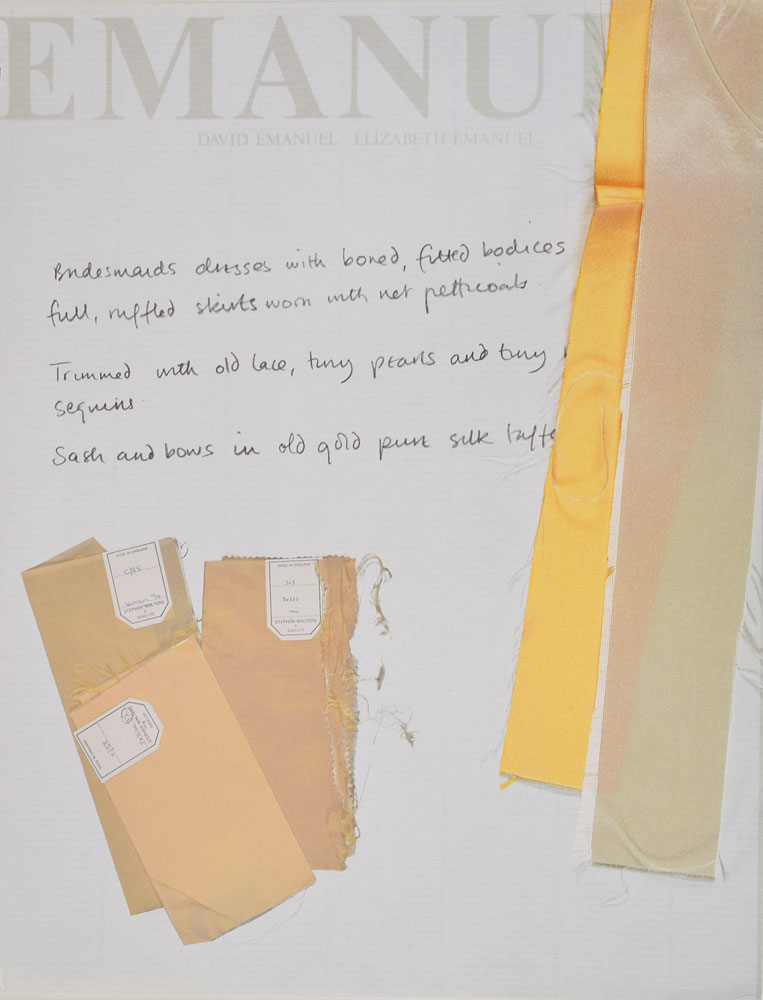 EMANU
DAVID EMANUEL ELIZABETH EMANUEL
Bridesmaids dresses with boned, fitted bodices
full, ruffled skirts worn with net petticoats
Trimmed with old lace, tiny pearls and tiny
sequins
Sash and bows in old gold pure silk taffe
MADE IN ENGLAND
C/25
STEPHEN WALTERS
&
SONS LTD
MADE IN ENGLAND
Twill
STEPHEN WALTERS
&
SONS LTD
MADE IN ENGLAND